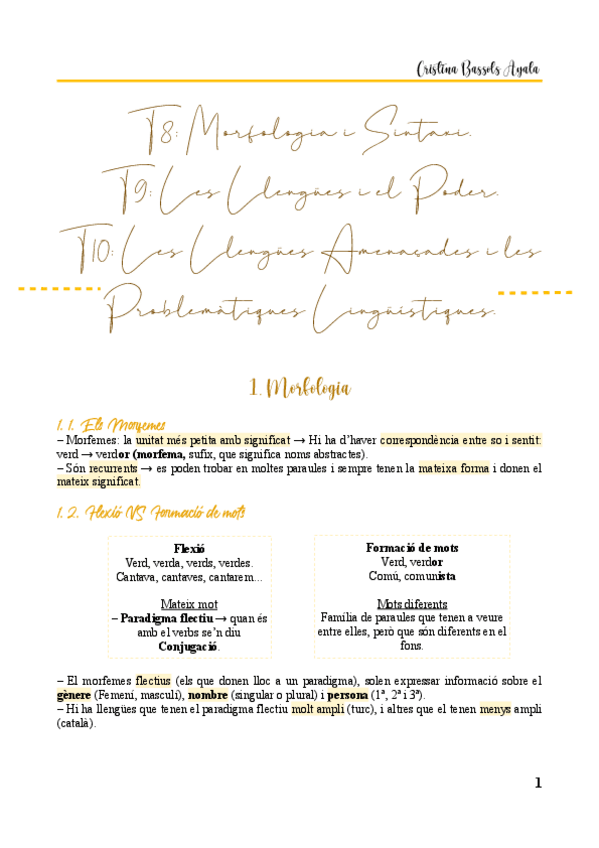 Cristina Bassols Ayala
T8: Morfologia i Sintaxi.
T9: Les Llengües i el Poder.
T10: Les Llengües Amenaçades i les
Problemàtiques Lingüístiques.
1. Morfologia
1. 1. Els Morfemes
– Morfemes: la unitat més petita amb significat → Hi ha d’haver correspondència entre so i sentit:
verd → verdor (morfema, sufix, que significa noms abstractes).
– Són recurrents → es poden trobar en moltes paraules i sempre tenen la mateixa forma i donen el
mateix significat.
1. 2. Flexió VS Formació de mots
Flexió
Verd, verda, verds, verdes.
Cantava, cantaves, cantarem...
Mateix mot
– Paradigma flectiu → quan és
amb el verbs se’n diu
Conjugació.
Formació de mots
Verd, verdor
Comú, comunista
Mots diferents
Família de paraules que tenen a veure
entre elles, però que són diferents en el
fons.
– El morfemes flectius (els que donen lloc a un paradigma), solen expressar informació sobre el
gènere (Femení, masculí), nombre (singular o plural) i persona (1ª, 2ª i 3ª).
– Hi ha llengües que tenen el paradigma flectiu molt ampli (turc), i altres que el tenen menys ampli
(català).
1